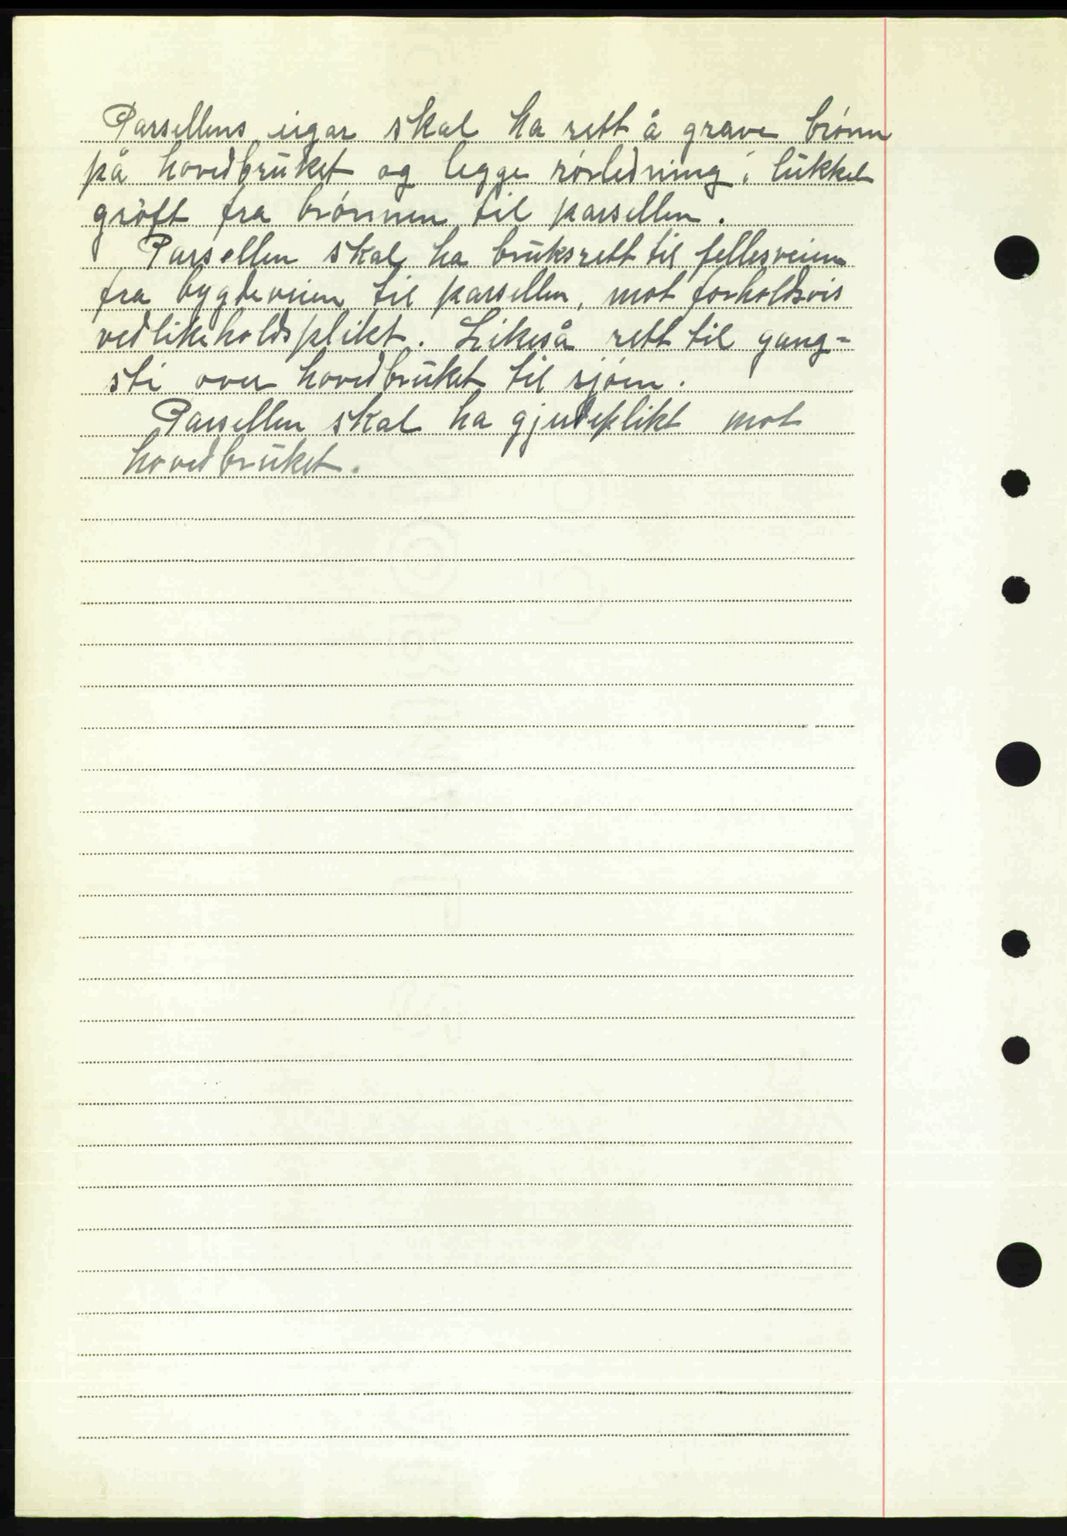 Parsellens eigar skal ha rett å grave brønn
på hovedbruket og legge rørledning i lukket
grøft fra brønnen til parsellen.
Parsellen skal ha bruksrett til fellesveien
fra bygdeveien til parsellen, mot forholdsvis
vedlikeholdsplikt. Likeså rett til gang-
sti over hovedbruket til sjøen.
Parsellen skal ha gjerdeplikt mot
hovedbruket.